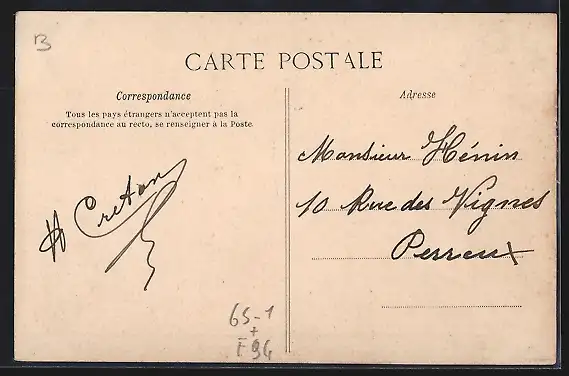 B
CARTE POSTALE
Correspondance
Tous les pays étrangers n'acceptent pas la
correspondance au recto, se renseigner à la Poste
Adresse
H Creton
Monsieur Hénin
10 Rue des Vignes
Perreux
65-1
+
F94